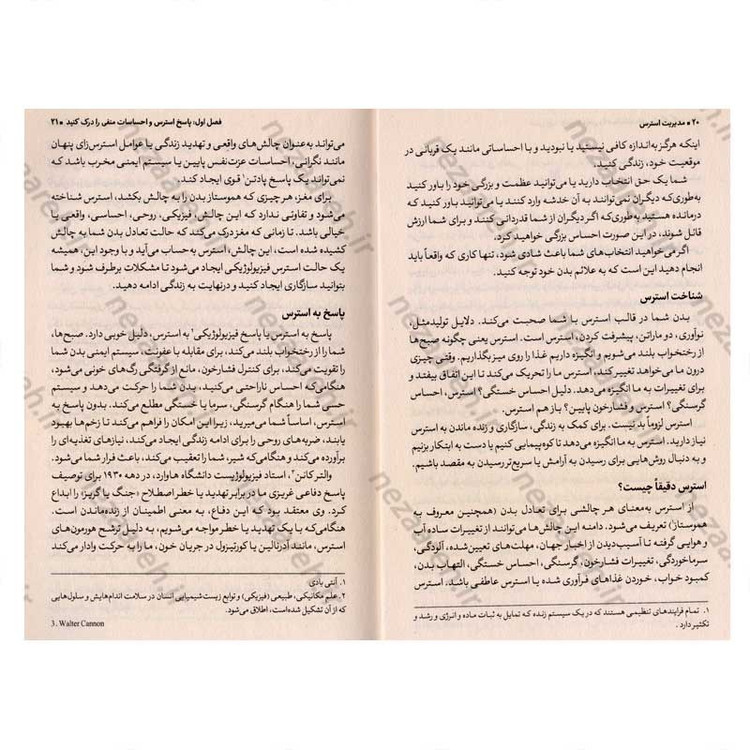 ۲۰ ■ مدیریت استرس
اینکه هرگز به‌اندازه کافی نیستید یا نبودید و با احساساتی مانند یک قربانی در
موقعیت خود، زندگی کنید.
شما یک حق انتخاب دارید یا می‌توانید عظمت و بزرگی خود را باور کنید
به‌طوری‌که دیگران نمی‌توانند به آن خدشه وارد کنند یا می‌توانید باور کنید که
درمانده هستید به‌طوری‌که اگر دیگران از شما قدردانی کنند و برای شما ارزش
قائل شوند، در این صورت احساس بزرگی خواهید کرد.
اگر می‌خواهید انتخاب‌های شما باعث شادی شود، تنها کاری که واقعاً باید
انجام دهید این است که به علائم بدن خود توجه کنید.
شناخت استرس
بدن شما در قالب استرس با شما صحبت می‌کند. دلایل تولیدمثل،
نوآوری، دو ماراتن، پیشرفت کردن، استرس است. استرس یعنی چگونه صبح‌ها
از رختخواب بلند می‌شویم و انگیزه داریم غذا را روی میز بگذاریم. وقتی چیزی
درون ما می‌خواهد تغییر کند، استرس ما را تحریک می‌کند تا این اتفاق بیفتد و
برای تغییرات به ما انگیزه می‌دهد. دلیل احساس خستگی؟ استرس، احساس
گرسنگی؟ استرس و فشارخون پایین؟ باز هم استرس.
استرس لزوماً بد نیست. برای کمک به زندگی، سازگاری و زنده ماندن به استرس
نیاز دارید. استرس به ما انگیزه می‌دهد تا کوه‌پیمایی کنیم یا دست به ابتکار بزنیم
و به دنبال روش‌هایی برای رسیدن به آرامش یا سریع‌تر رسیدن به مقصد باشیم.
استرس دقیقاً چیست؟
از استرس به‌معنای هر چالشی برای تعادل بدن (همچنین معروف به
هموستاز۱) تعریف می‌شود. دامنه این چالش‌ها می‌توانند از تغییرات ساده آب
و هوایی گرفته تا آسیب‌دیدن از اخبار جهان، مهلت‌های تعیین‌شده، آلودگی،
سرماخوردگی، تغییرات فشارخون، گرسنگی، احساس خستگی، التهاب بدن،
کمبود خواب، خوردن غذاهای فرآوری شده یا استرس عاطفی باشد. استرس
۱. تمام فرایندهای تنظیمی هستند که در یک سیستم زنده که تمایل به ثبات ماده و انرژی و رشد و
تکثیر دارد .
فصل اول: پاسخ استرس و احساسات منفی را درک کنید ■ ۲۱
می‌تواند به‌عنوان چالش‌های واقعی و تهدید زندگی یا عوامل استرس‌زای پنهان
مانند نگرانی، احساسات عزت‌نفس پایین یا سیستم ایمنی مخرب باشد که
نمی‌تواند یک پاسخ پادتن۱ قوی ایجاد کند.
برای مغز، هر چیزی که هموستاز بدن را به چالش بکشد، استرس شناخته
می‌شود و تفاوتی ندارد که این چالش، فیزیکی، روحی، احساسی، واقعی یا
خیالی باشد. تا زمانی که مغز درک می‌کند که حالت تعادل بدن شما به چالش
کشیده شده است، این چالش، استرس به‌حساب می‌آید و با وجود این، همیشه
یک حالت استرس فیزیولوژیکی ایجاد می‌شود تا مشکلات برطرف شود و شما
بتوانید سازگاری ایجاد کنید و درنهایت به زندگی ادامه دهید.
پاسخ به استرس
پاسخ به استرس یا پاسخ فیزیولوژیکی۲ به استرس، دلیل خوبی دارد. صبح‌ها،
شما را از رختخواب بلند می‌کند، برای مقابله با عفونت، سیستم ایمنی بدن شما
را تقویت می‌کند، برای کنترل فشارخون، مانع از گرفتگی رگ‌های خونی می‌شود،
هنگامی‌که احساس ناراحتی می‌کنید، بدن شما را حرکت می‌دهد و سیستم
حسی شما را هنگام گرسنگی، سرما یا خستگی مطلع می‌کند. بدون پاسخ به
استرس، اساساً شما می‌میرید، زیرا این امکان را فراهم می‌کند تا زخم‌ها بهبود
یابند، ضربه‌های روحی را برای ادامه زندگی ایجاد می‌کند، نیازهای تغذیه‌ای را
برآورده می‌کند و هنگامی‌که شیر، شما را تعقیب می‌کند، باعث فرار شما می‌شود.
والتر کانن۳، استاد فیزیولوژیست دانشگاه هاوارد، در دهه ۱۹۳۰ برای توصیف
پاسخ دفاعی غریزی ما در برابر تهدید یا خطر اصطلاح «جنگ یا گریز» را ابداع
کرد. وی معتقد بود که این دفاع، به معنی اطمینان از زنده‌ماندن است.
هنگامی‌که با یک تهدید یا خطر مواجه می‌شویم، به دلیل ترشح هورمون‌های
استرس، مانند آدرنالین یا کورتیزول در جریان خون، ما را به حرکت وادار می‌کند
۱. آنتی بادی
۲. علم مکانیکی، طبیعی (فیزیکی) و توابع زیست شیمیایی انسان در سلامت اندام‌هایش و سلول‌هایی
که از آن تشکیل شده‌است، اطلاق می‌شود.
3. Walter Cannon
nezareh.ir